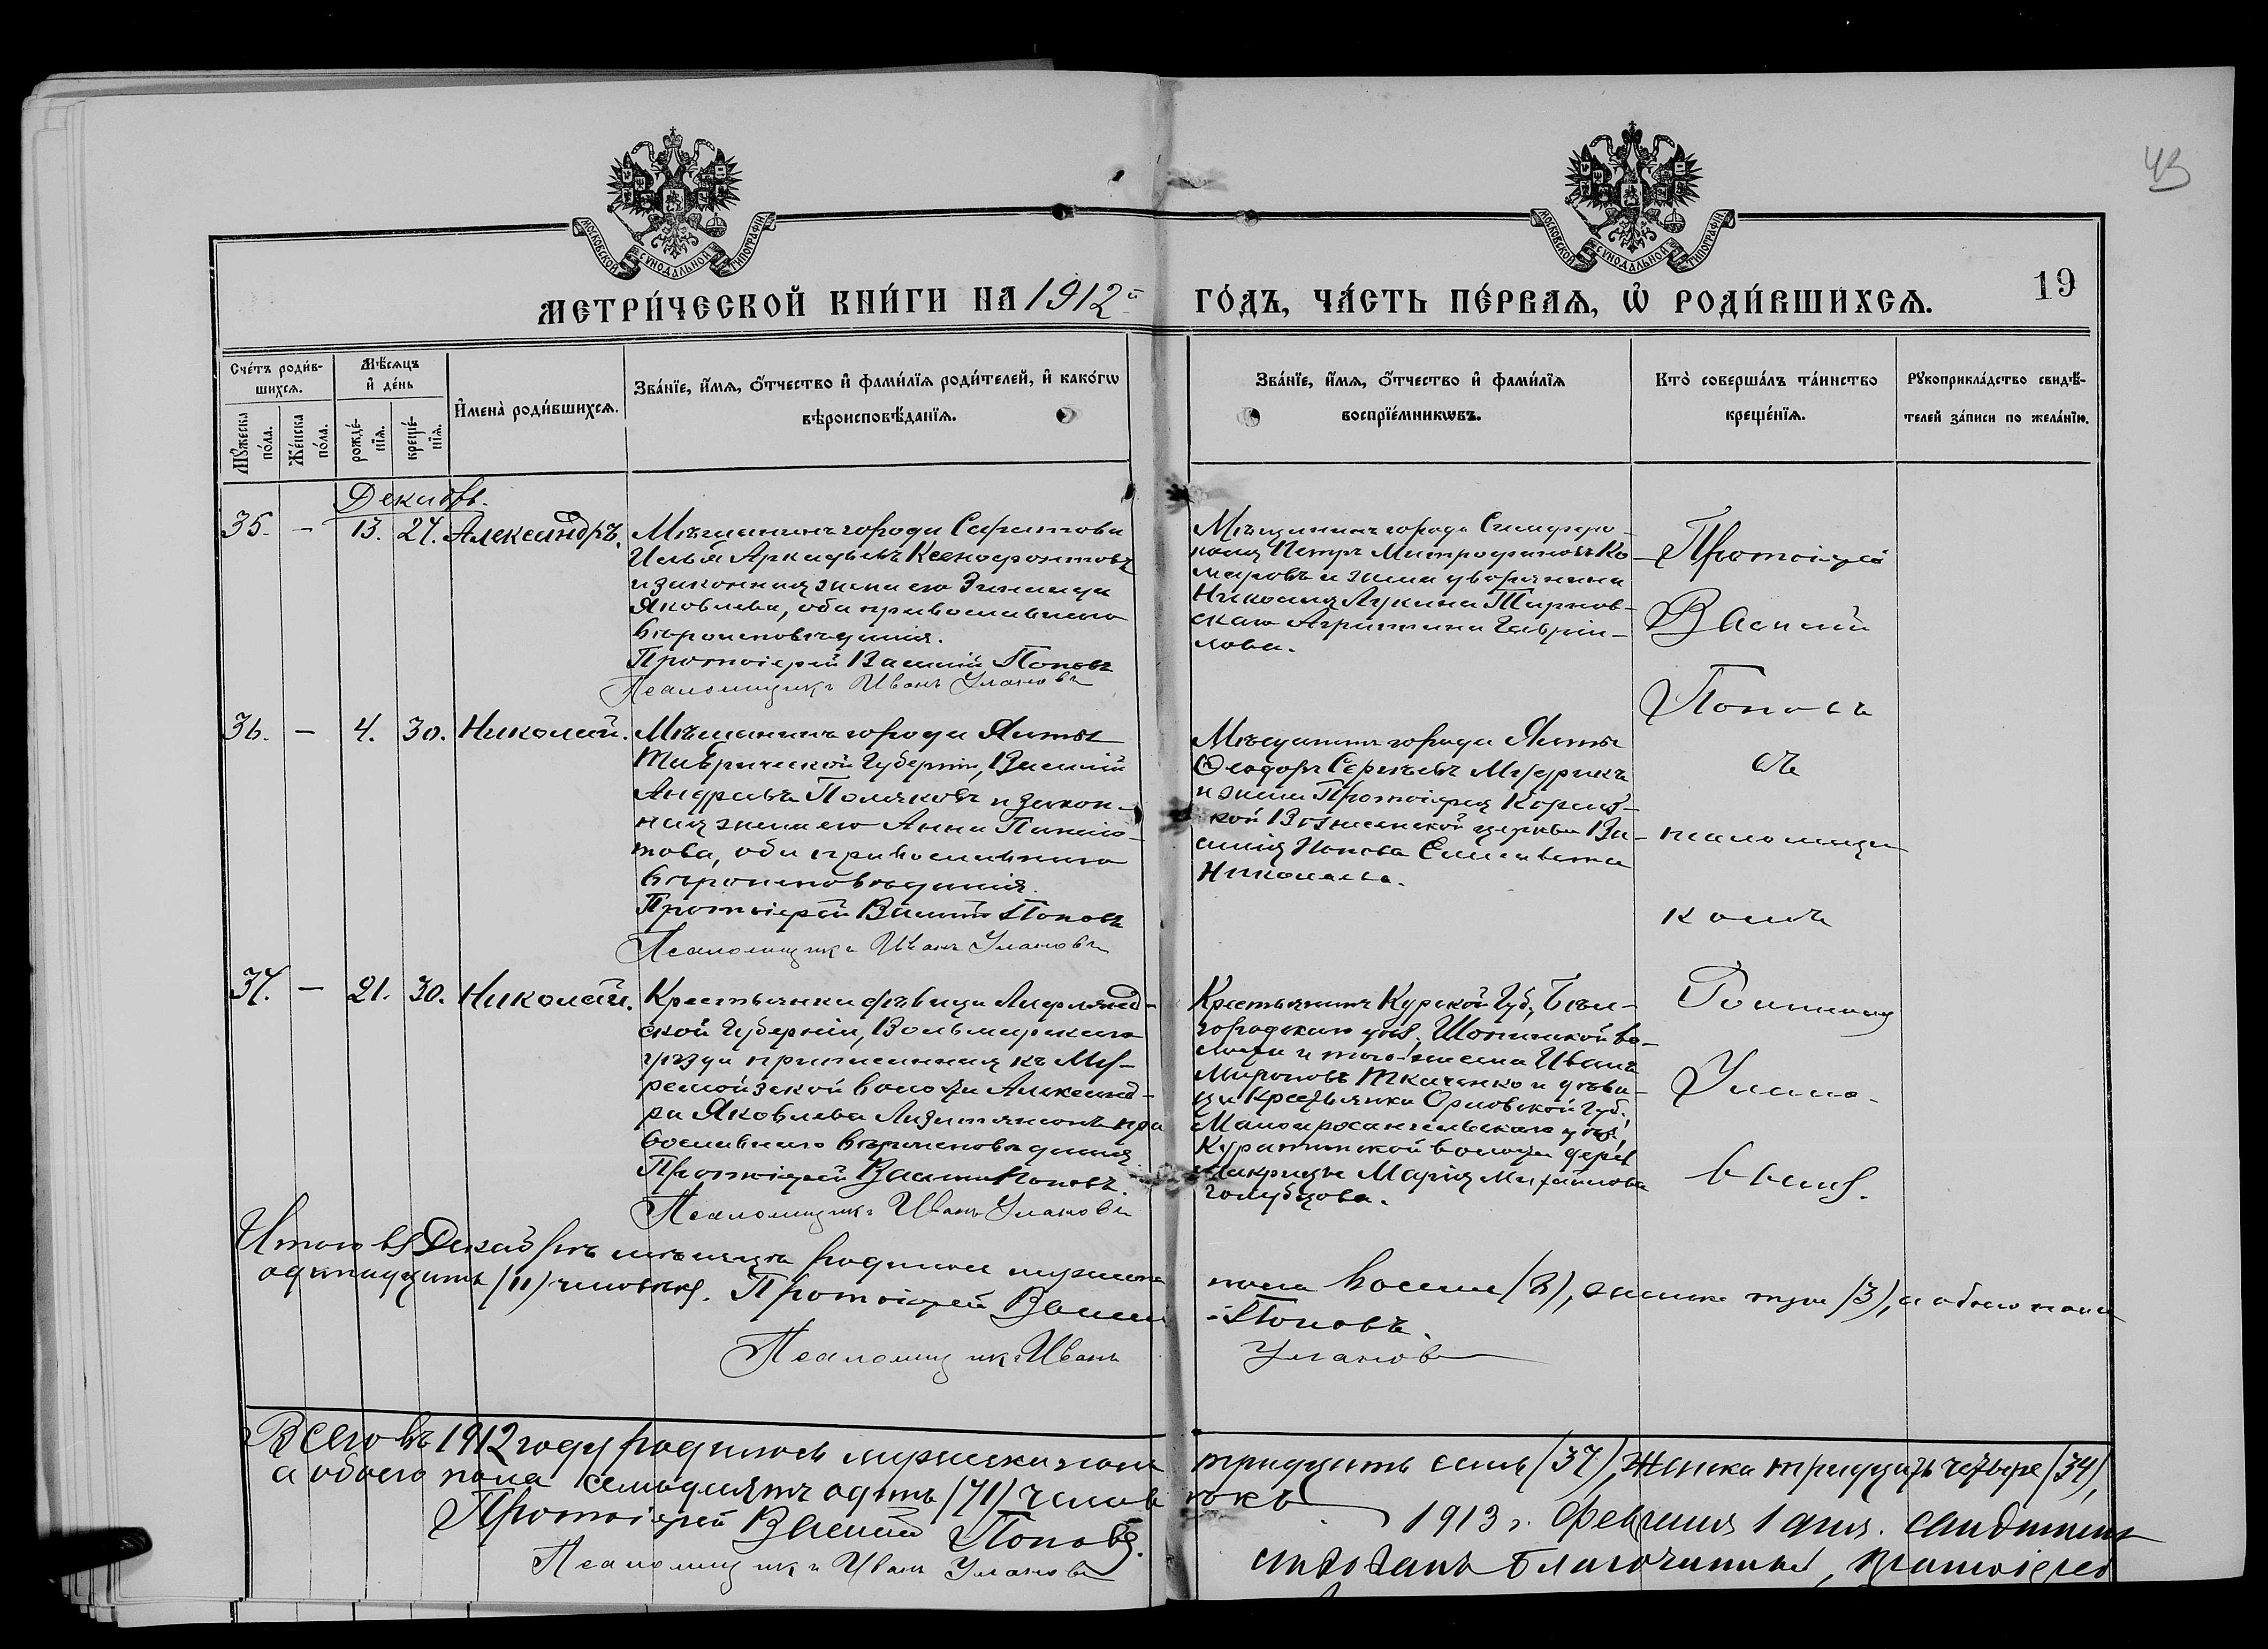 43
МОСКОВСКОЙ СѴНОДАЛЬНОЙ ТИПОГРАФІИ
МОСКОВСКОЙ СѴНОДАЛЬНОЙ ТИПОГРАФІИ
19
МЕТРИ́ЧЕСКОЙ КНИ́ГИ НА 1912й ГО́ДЪ, ЧА́СТЬ ПЕ́РВАѦ, Ѡ РОДИ́ВШИХСѦ.
Сче́тъ роди́в-
шихсѧ.
Мꙋжеска по́ла.
Же́нска по́ла.
Мѣ́сѧцъ
и де́нь
рожде́-
нїѧ.
креще́-
нїѧ.
Имена̀ роди́вшихсѧ.
Зва́нїе, и́мѧ, о́тчество и фами́лїѧ роди́телей, и како́гѡ
вѣроисповѣ́данїѧ.
Зва́нїе, и́мѧ, о́тчество и фами́лїѧ
воспрїе́мникѡвъ.
Кто̀ соверша́лъ та́инство
креще́нїѧ.
Рꙋкоприкла́дство свидѣ́-
телей за́писи по жела́нїю.
Декабрь.
35. — 13. 27. Александръ.
Мѣщанинъ города Саратова
Илья Аркадьевъ Ксенофонтовъ
и законная жена его Зинаида
Яковлева, оба православнаго
вѣроисповѣданія.
Протоіерей Василій Поповъ
Псаломщикъ Иванъ Улановъ
Мѣщанинъ города Симферо-
поля Петръ Митрофановъ Ко-
маровъ и жена дворянина
Николая Лукина Тарнов-
скаго Агрипина Гаврии-
лова.
36. — 4. 30. Николай.
Мѣщанинъ города Ялты
Таврической Губерніи, Василій
Андреевъ Поляковъ и закон-
ная жена его Анна
това, оба православнаго
вѣроисповѣданія.
Протоіерей Василій Поповъ
Псаломщикъ Иванъ Улановъ
Мѣщанинъ города Ялты
Ѳеодоръ Сергѣевъ
и жена Протоіерея Кореиз-
кой Вознесенской церкви Ва-
силія Попова Елисавета
Николаева.
37. — 21. 30. Николай.
Крестьянка дѣвица Лифлянд-
ской Губерніи, Вольмарскаго
уѣзда приписанная къ
волости Александ-
ра Яковлева пра
вославнаго вѣроисповѣданія
Протоіерей Василій Поповъ.
Псаломщикъ Иванъ Улановъ
Крестьянинъ Курской Губ., Бѣл-
городскаго уѣз., Шопинской во-
лости и того-же села Иванъ
Мироновъ Ткаченко и дѣви-
ца крестьянка Орловской Губ.
Малоархангельскаго уѣз,
волости дерев
Марія Михайлова
Голубцова.
Протоіерей
Василій
Поповъ
съ
псаломщи
комъ
Іоанномъ
Улано-
вымъ.
Итого въ Декабрѣ мѣсяцѣ родилось мужеска пола восемь (8), женска три (3), а обоего пола
одинадцать (11) человѣкъ. Протоіерей Василій Поповъ.
Псаломщикъ Иванъ Улановъ
Всего въ 1912 году родилось мужеска пола тридцать семь (37), женска тридцать четыре (34),
а обоего пола семьдесятъ одинъ (71) человѣкъ
Протоіерей Василій Поповъ.
Псаломщикъ Иванъ Улановъ
1913 г. февраля 1 дня.
Благочинный, протоіерей